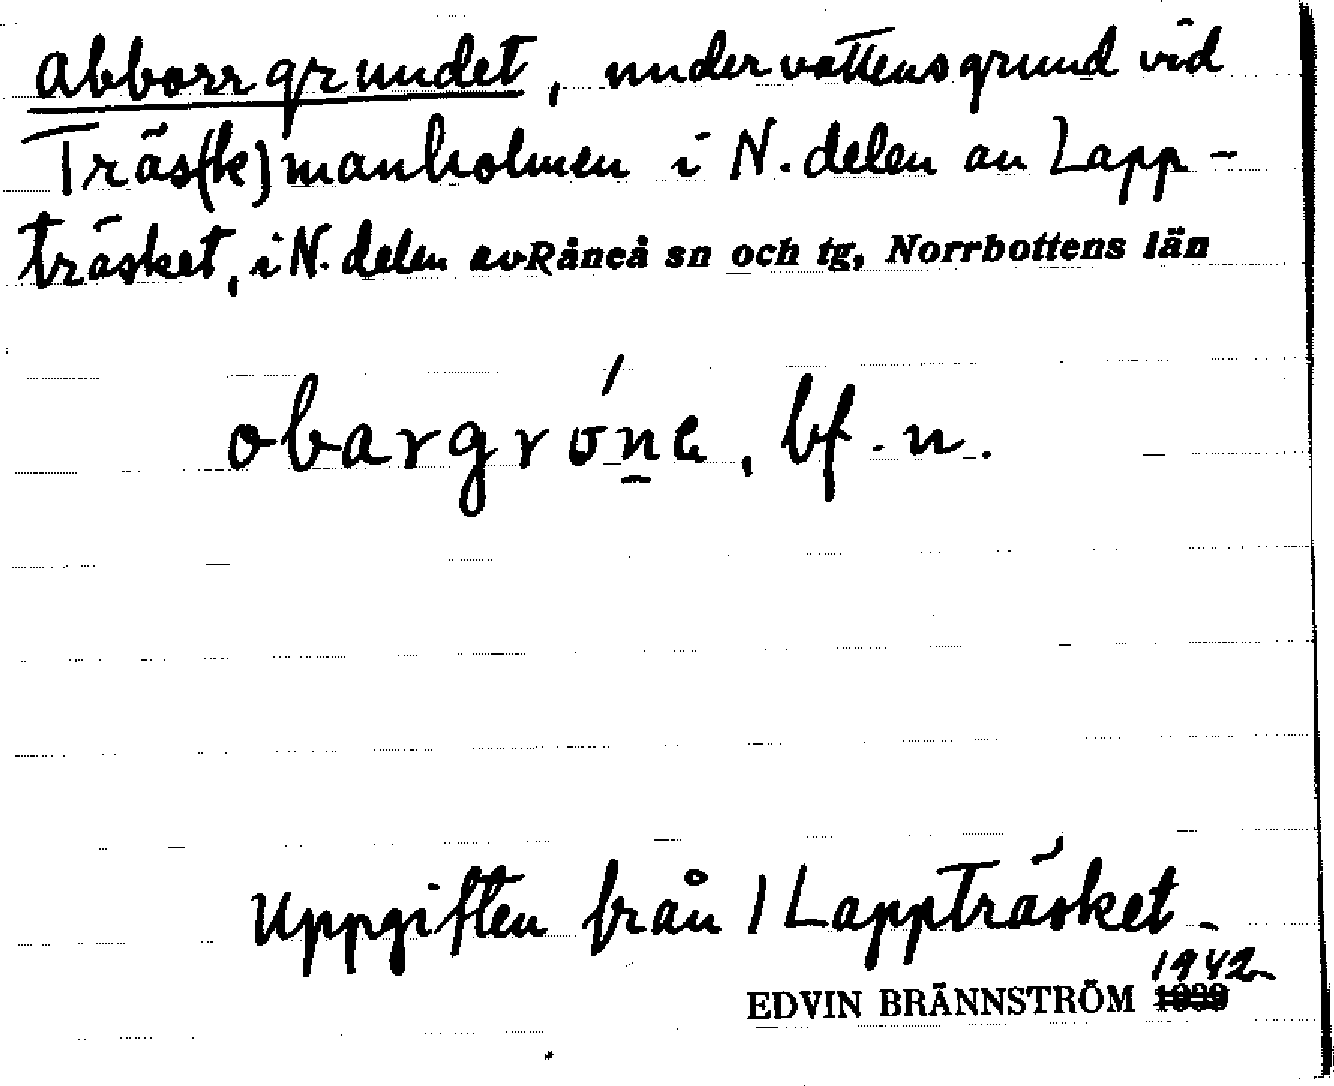 Abborrgrundet, undervattensgrund vid
Träs(k)manholmen i N. delen av Lapp-
träsket, i N. delen av Råneå sn och tg, Norrbottens län
obargrónɐ, bf. n.
Uppgiften från 1 Lappträsket.
1942
EDVIN BRÄNNSTRÖM